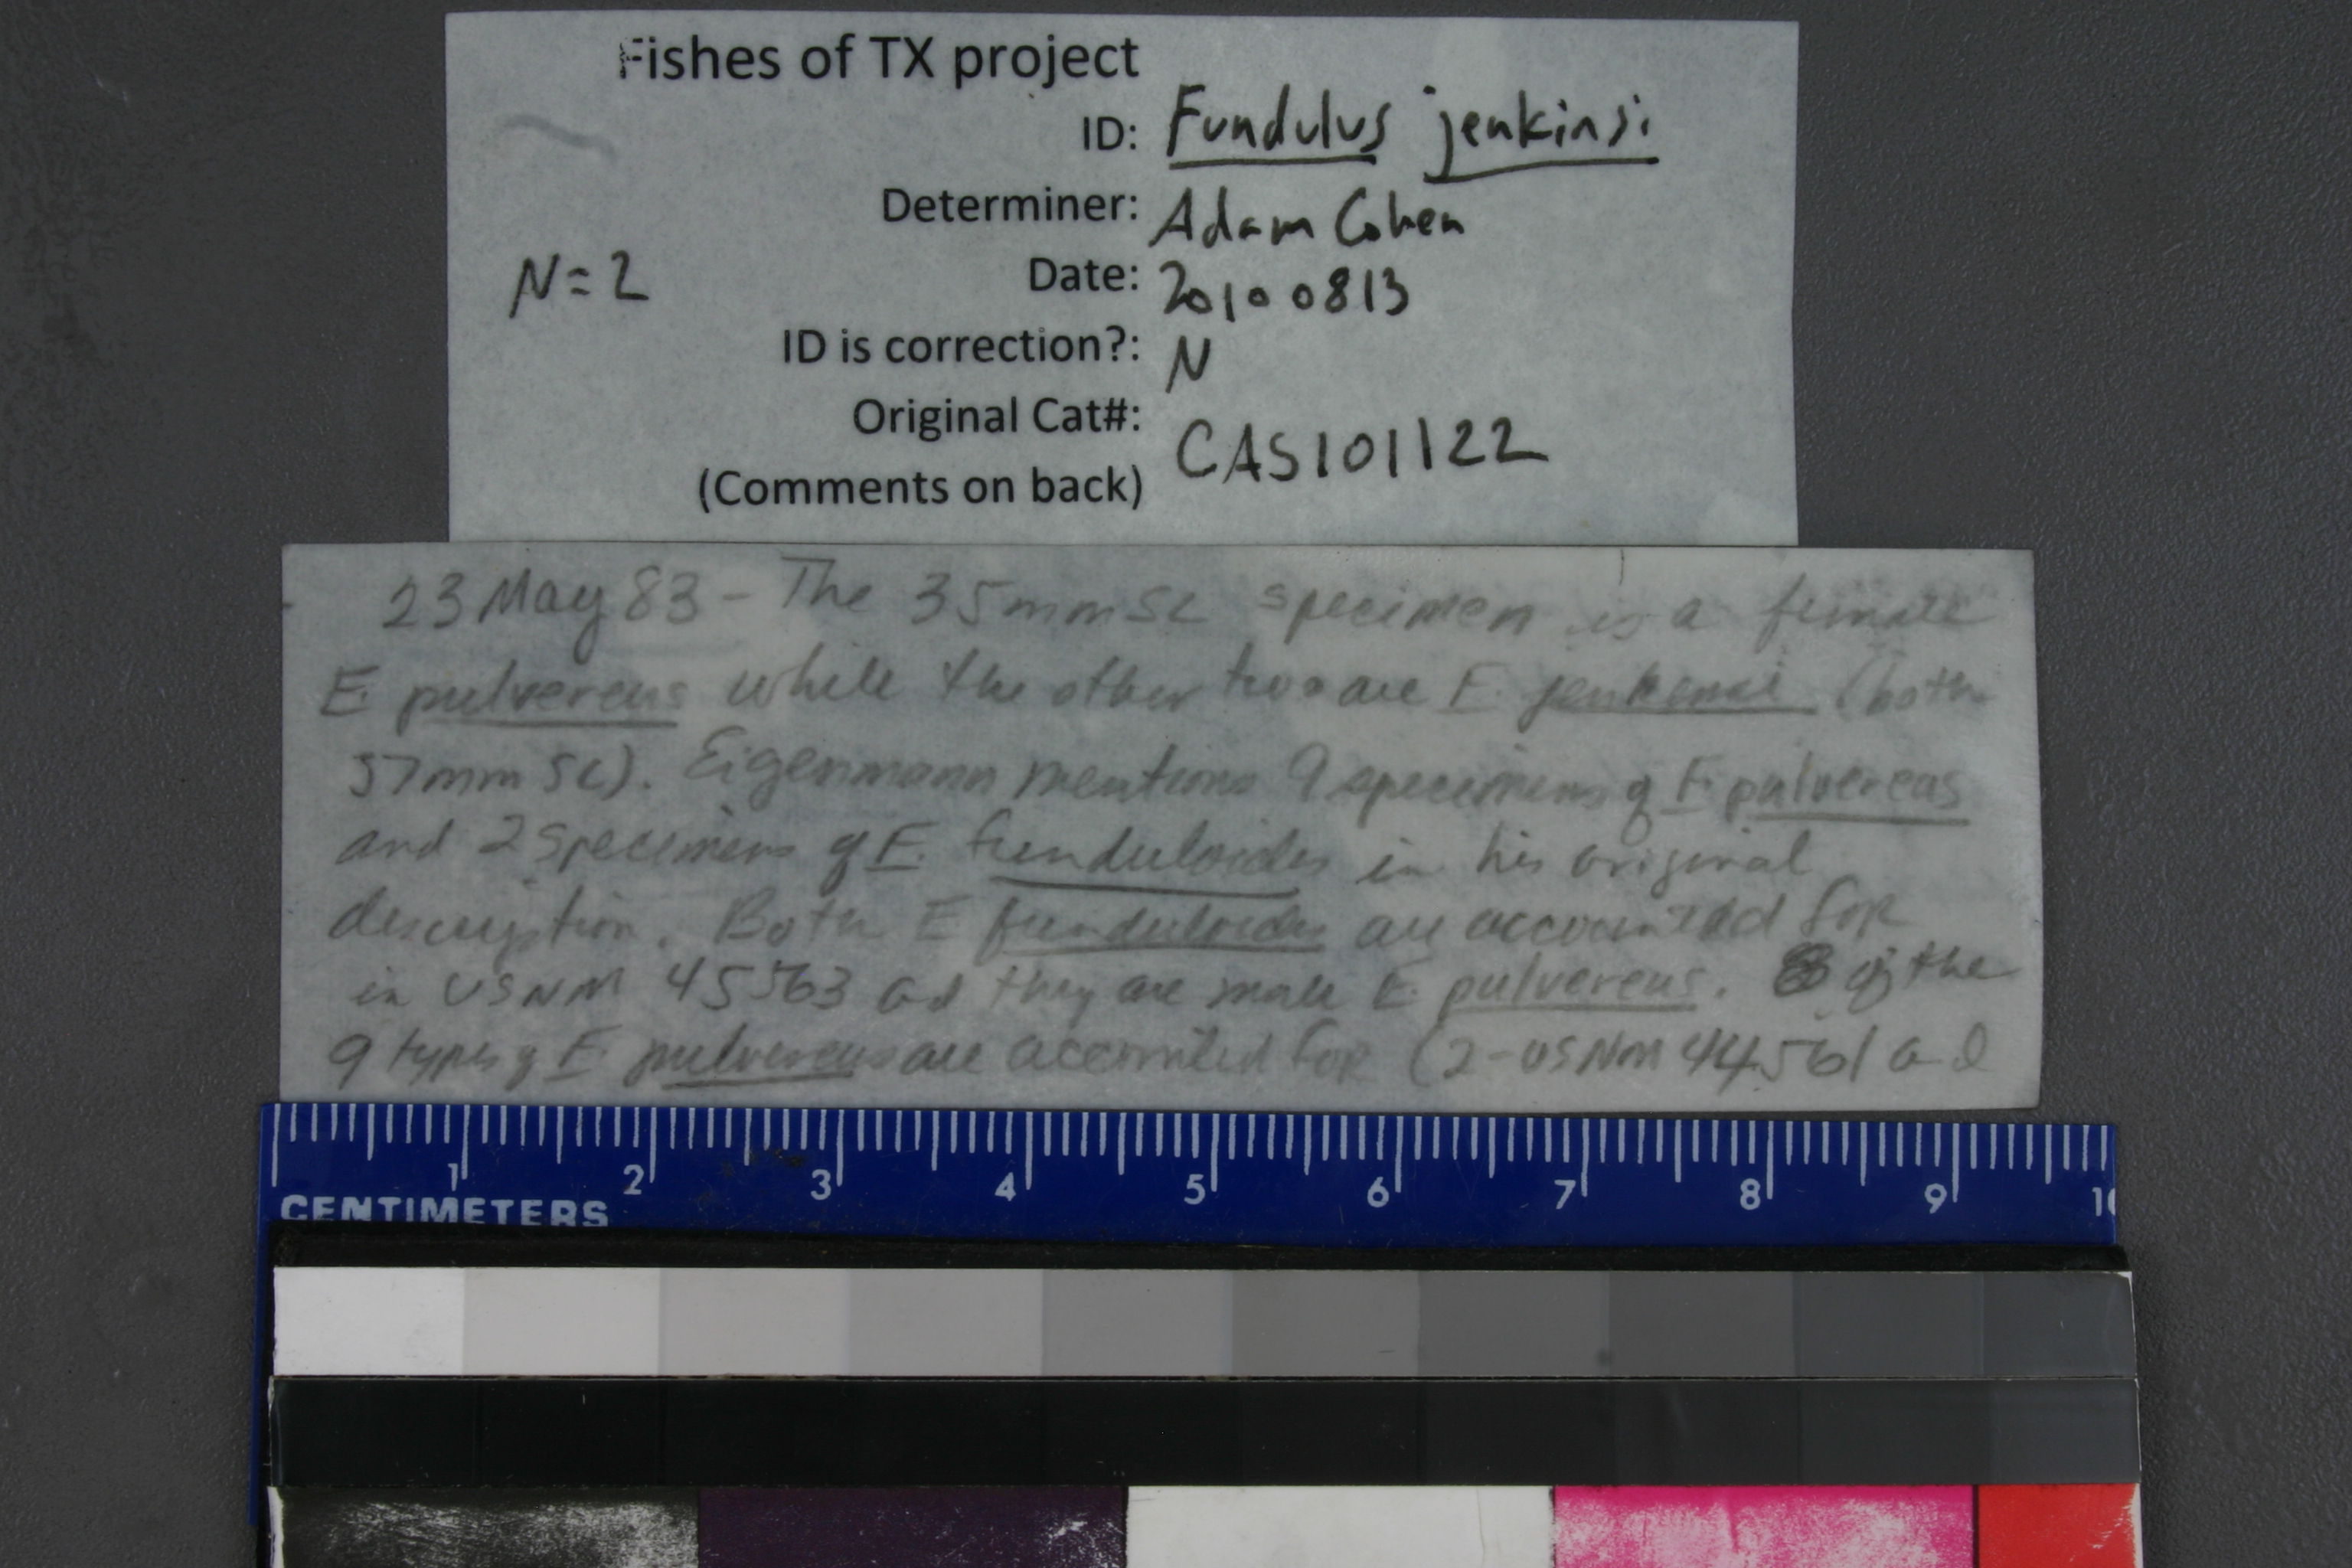 Fishes of TX project
ID: Fundulus jenkinsi
Determiner: Adam Cohen
N=2
Date: 20100813
ID is correction?: N
Original Cat#: CAS101122
(Comments on back)
23 May 83 - The 35mm SL specimen is a female
F. pulvereus while the other two are F. jenkinsi (both
37mm SL). Eigenmann mentions 9 specimens of F. pulvereus
and 2 specimens of F. funduloides in his original
description. Both F. funduloides are accounted for
in USNM 45563 and they are male F. pulvereus. 8 of the
9 types of F. pulvereus are accounted for (2-USNM 44561 and
1 2 3 4 5 6 7 8 9 10
CENTIMETERS